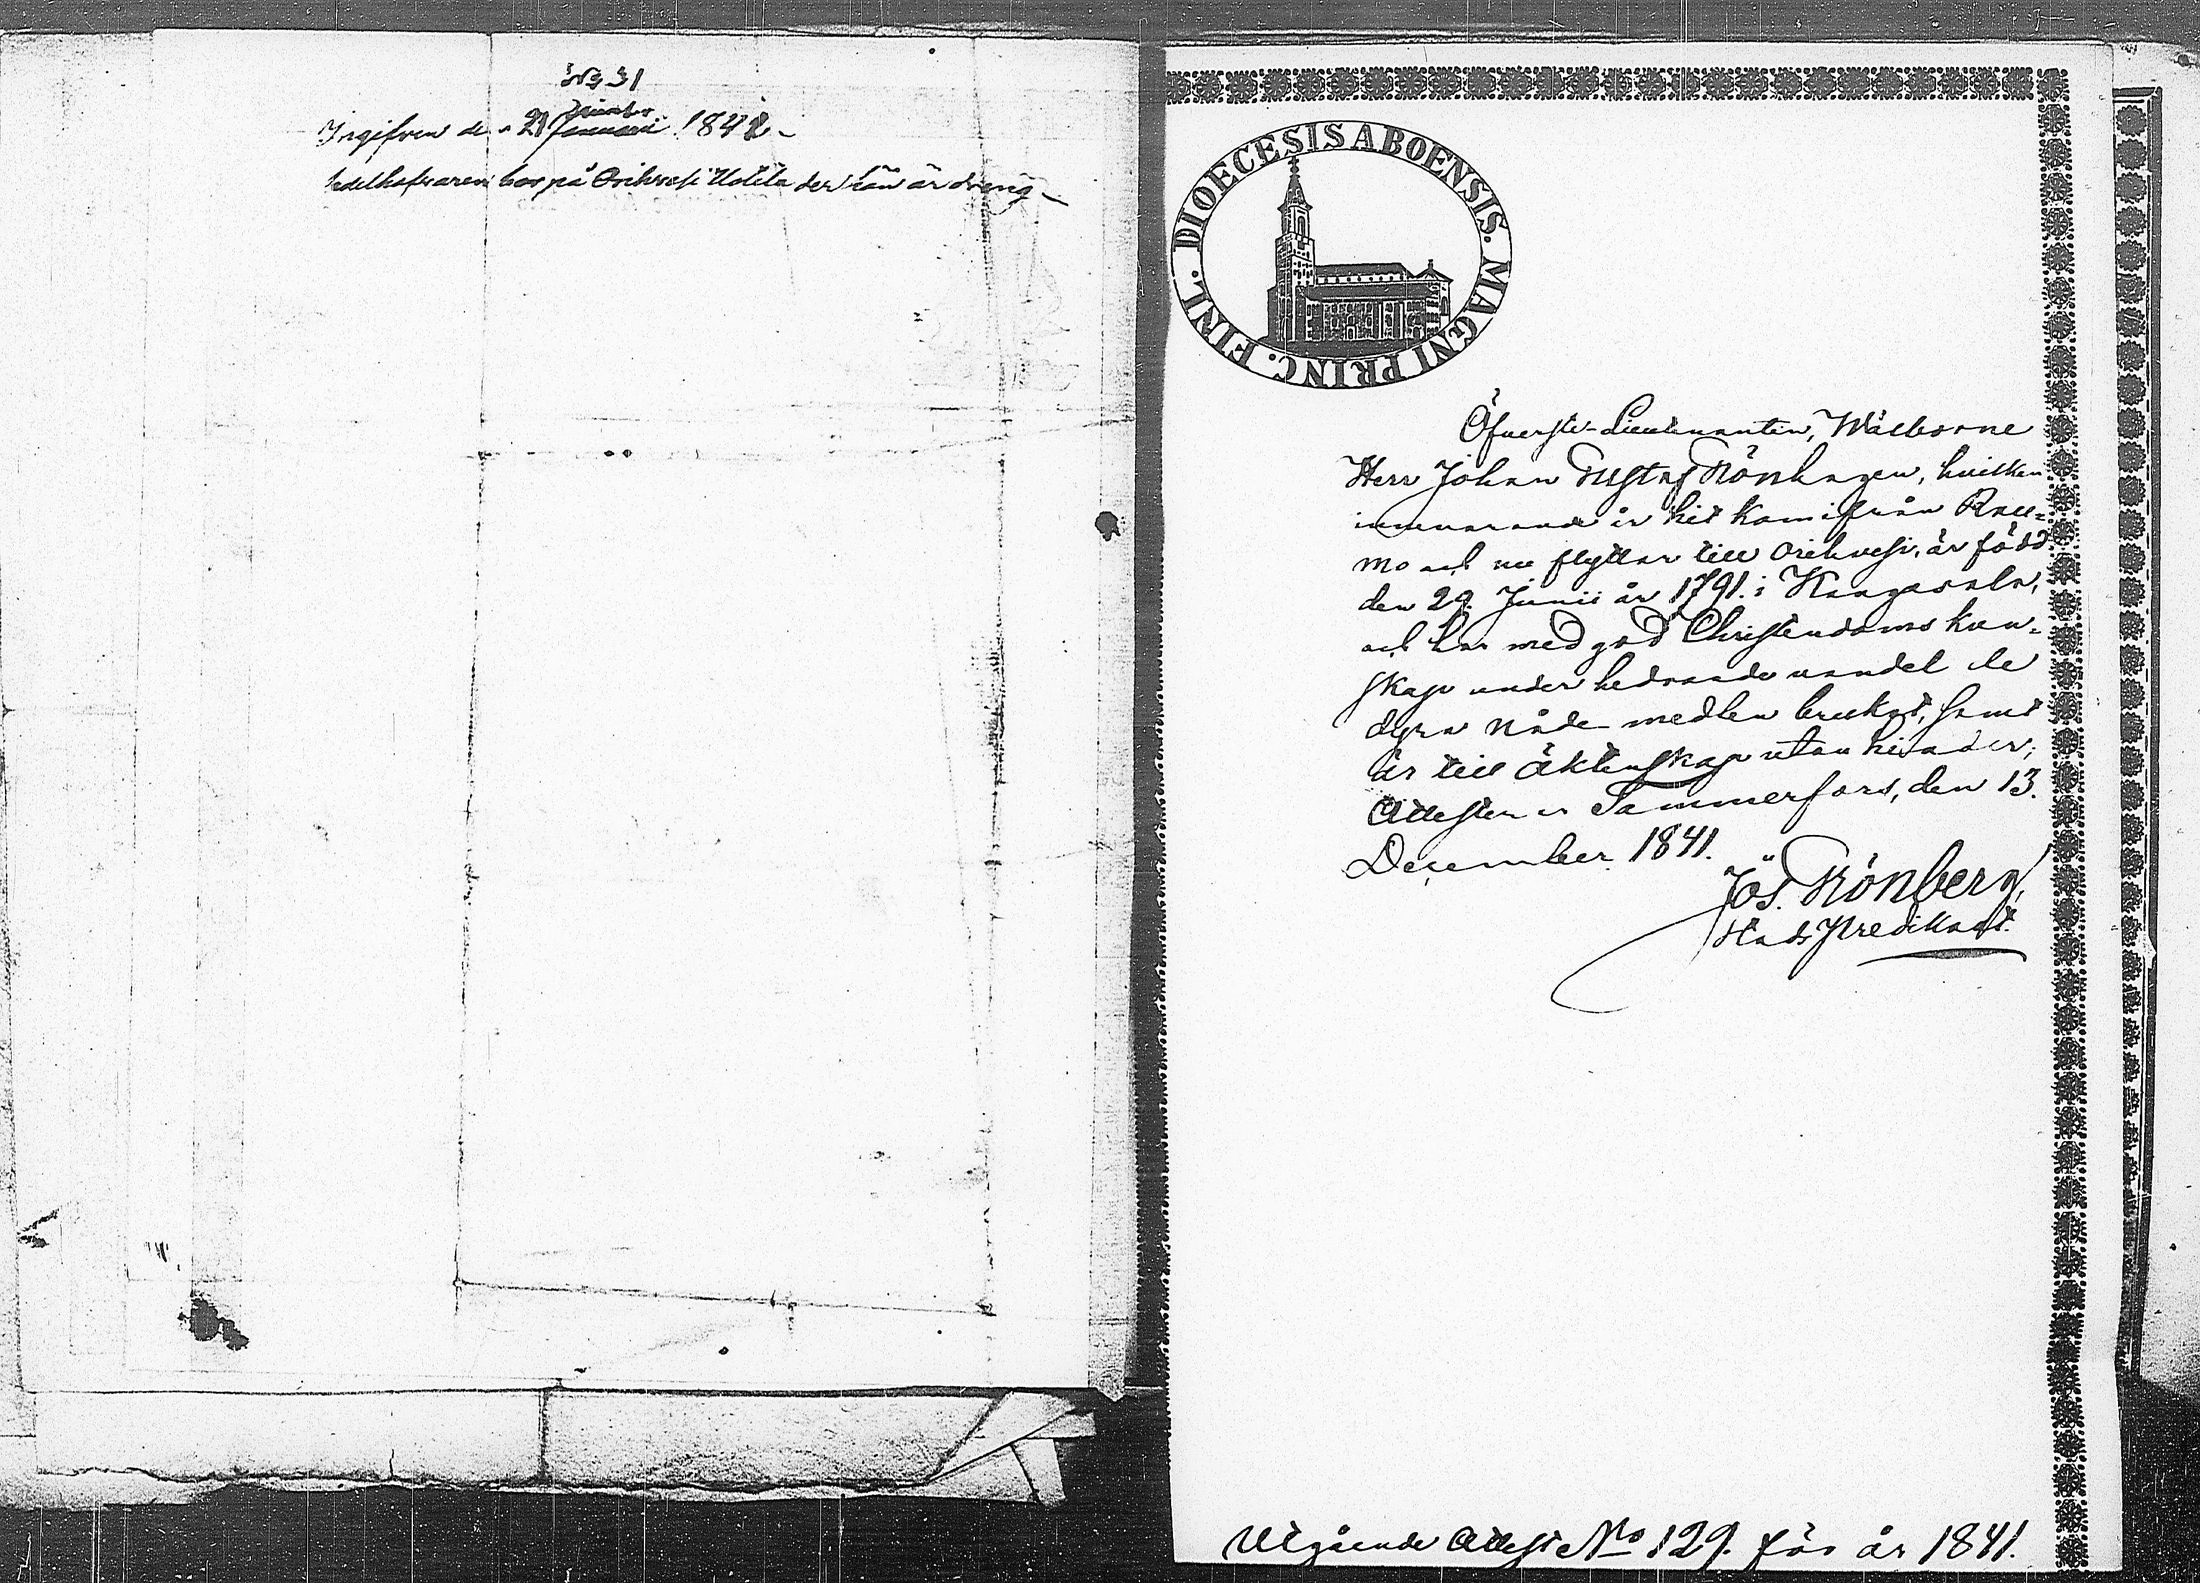 No 31
Ingifven den 21 Januari 1842
Sedelhafvaren bor på Orihvesi Uotila der han är dreng
DIOECESIS ABOENSIS. MAGNI PRINC. FINL.
Öfverste-Lieutenanten, Wälborne
Herr Johan Gustaf Rönhagen, hvilken
innevarande år hit kom ifrån Rau=
mo och nu flyttar till Orihvesi, är född
den 29. Junii år 1791. i Kangasala,
och har med god Christendoms kun=
skap under hedrande vandel de
dyra nåde medlen brukat, samt
är till äktenskap utan hinder;
Attesterar Tammerfors, den 13.
December 1841.
Jos. Rönberg,
StadsPredikant.
Utgående Attest No 129. för år 1841.